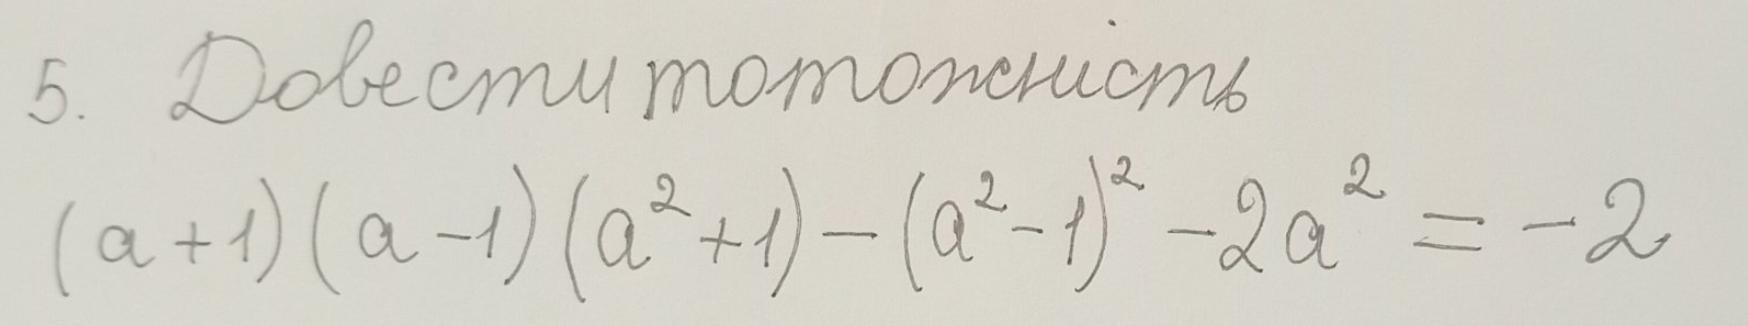 5. Довести тотожність
(a+1)(a-1)(a²+1)-(a²-1)²-2a²=-2